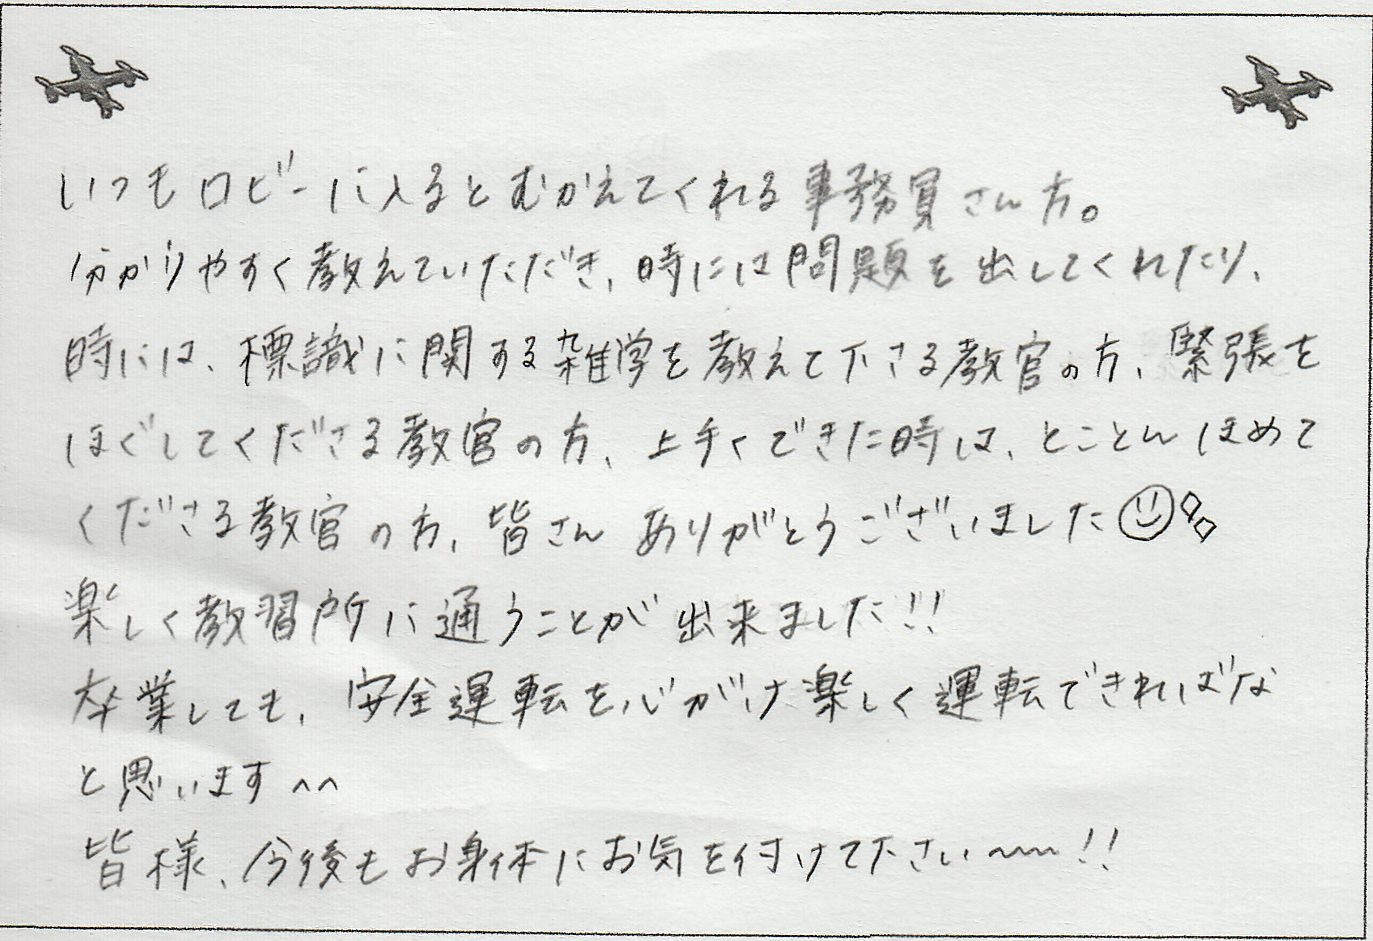 いつもロビーに入るとむかえてくれる事務員さん方。
分かりやすく教えていただき、時には問題を出してくれたり、
時には、標識に関する雑学を教えて下さる教官の方、緊張を
ほぐしてくださる教官の方、上手くできた時は、とことんほめて
くださる教官の方、皆さんありがとうございました
楽しく教習所に通うことが出来ました!!
卒業しても、安全運転を心がけ楽しく運転できればな
と思います^^
皆様、今後もお身体にお気を付けて下さい〜〜!!